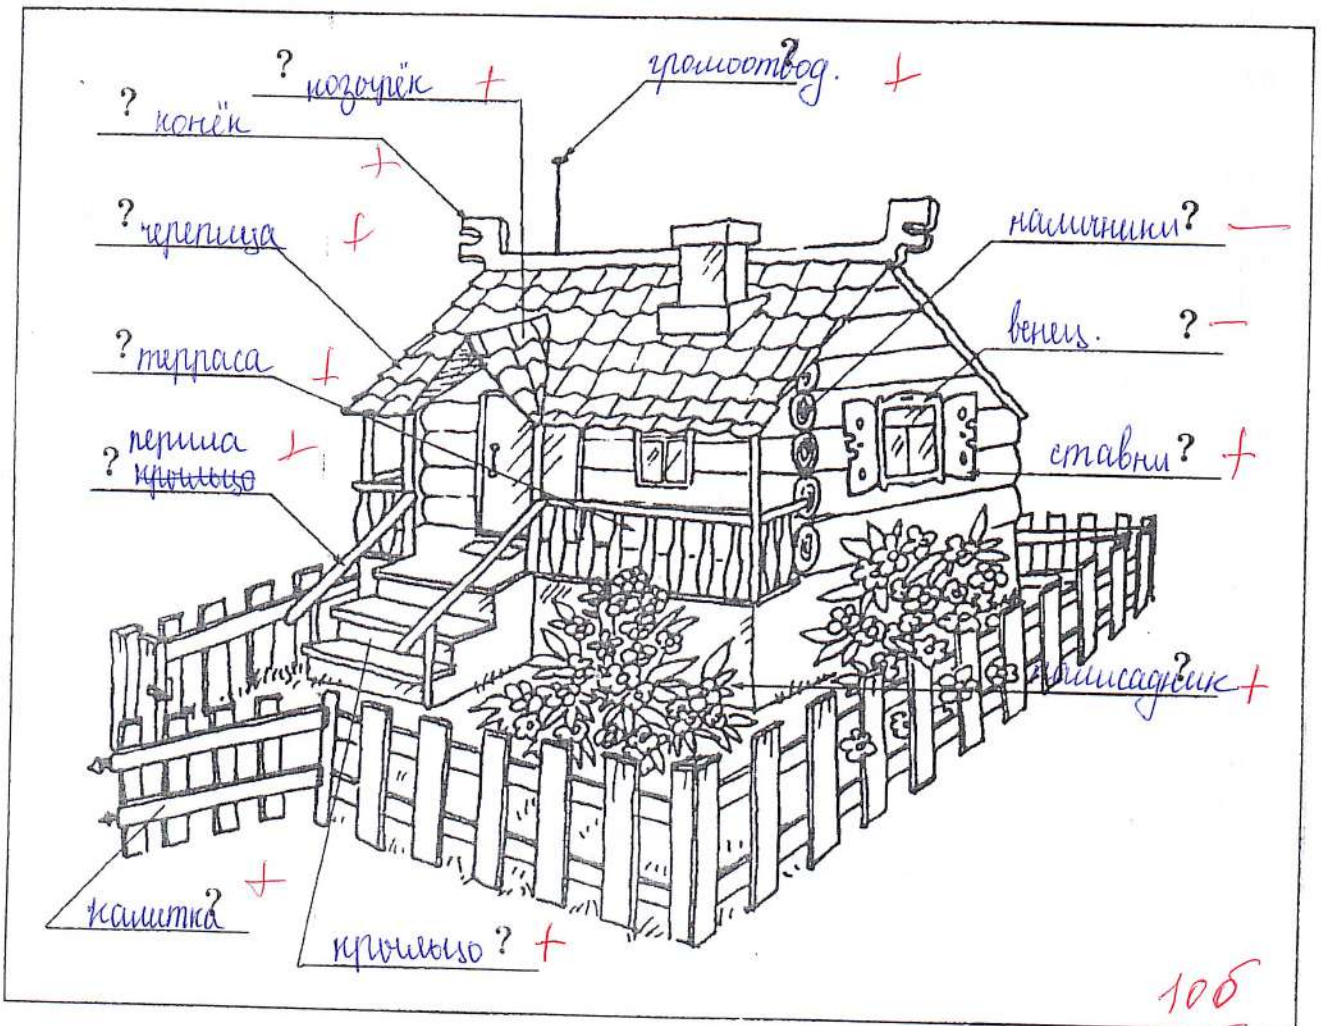 ? козырёк +
громоотвод. ? +
? конёк +
? черепица +
наличники ? —
венец. ? —
? терраса +
перила +
? крыльцо
ставни ? +
палисадник ? +
калитка ? +
крыльцо ? +
10б